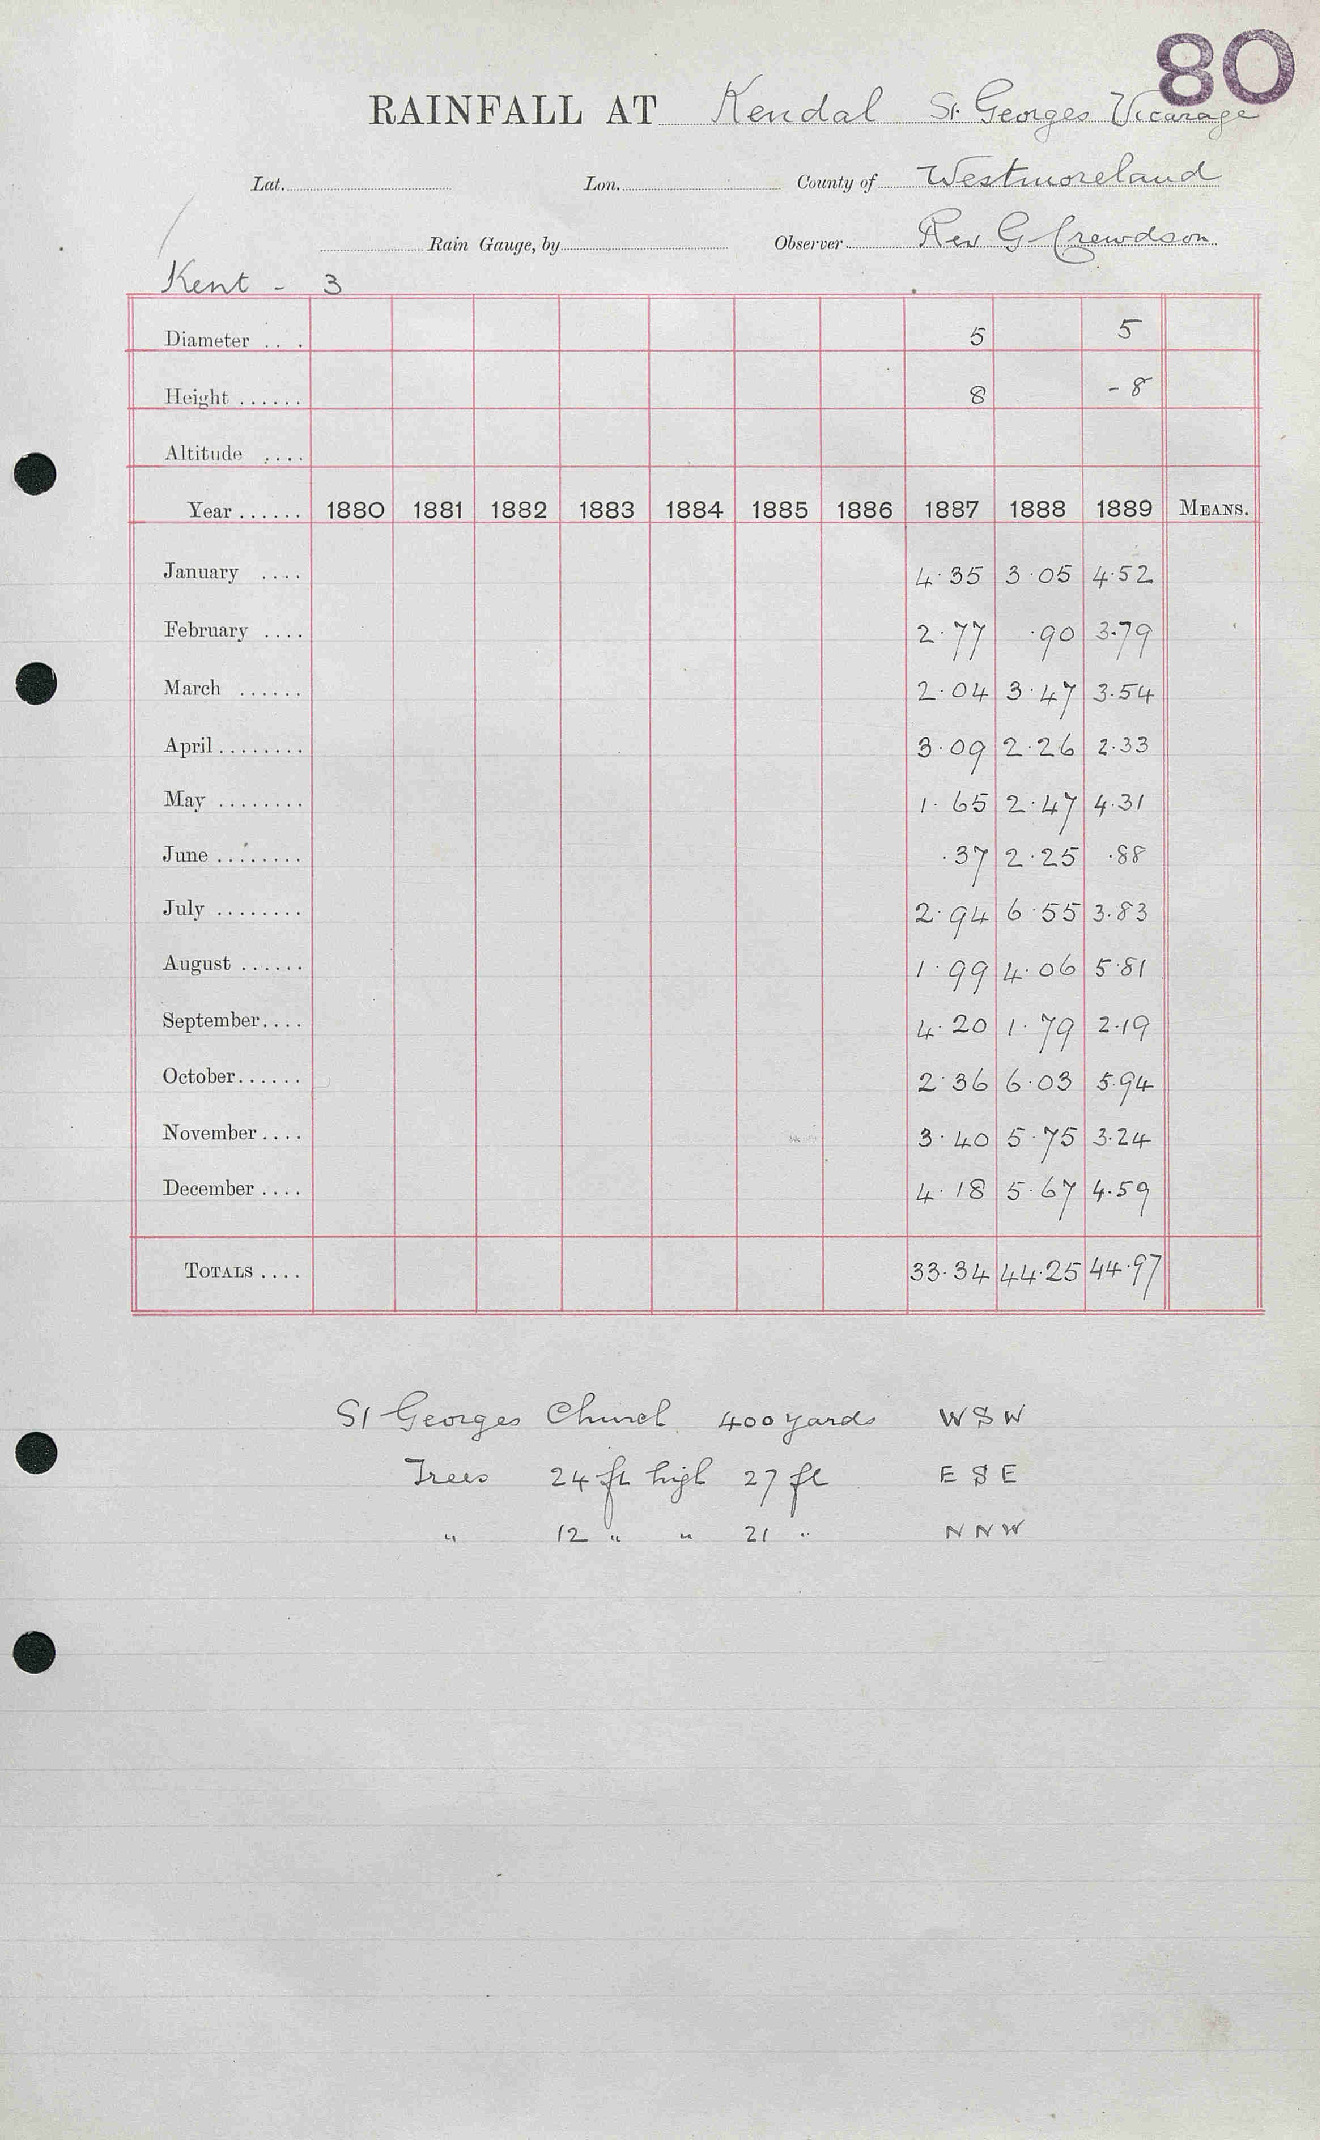 80
RAINFALL AT Kendal St. Georges Vicarage
Lat. Lon. County of Westmoreland
Rain Gauge, by Observer Rev G Crewdson
Kent - 3
Diameter .. . 5 5
Height ...... 8 - 8
Altitude ....
Year ...... 1880 1881 1882 1883 1884 1885 1886 1887 1888 1889 MEANS.
January .... 4.35 3.05 4.52
February .... 2.77 .90 3.79
March ...... 2.04 3.47 3.54
April ........ 3.09 2.26 2.33
May ........ 1.65 2.47 4.31
June ........ .37 2.25 .88
July ........ 2.94 6.55 3.83
August ...... 1.99 4.06 5.81
September.... 4.20 1.79 2.19
October...... 2.36 6.03 5.94
November.... 3.40 5.75 3.24
December .... 4.18 5.67 4.59
TOTALS .... 33.34 44.25 44.97
St Georges Church 400 yards W S W
Trees 24 ft high 27 ft E S E
" 12 " " 21 " N N W